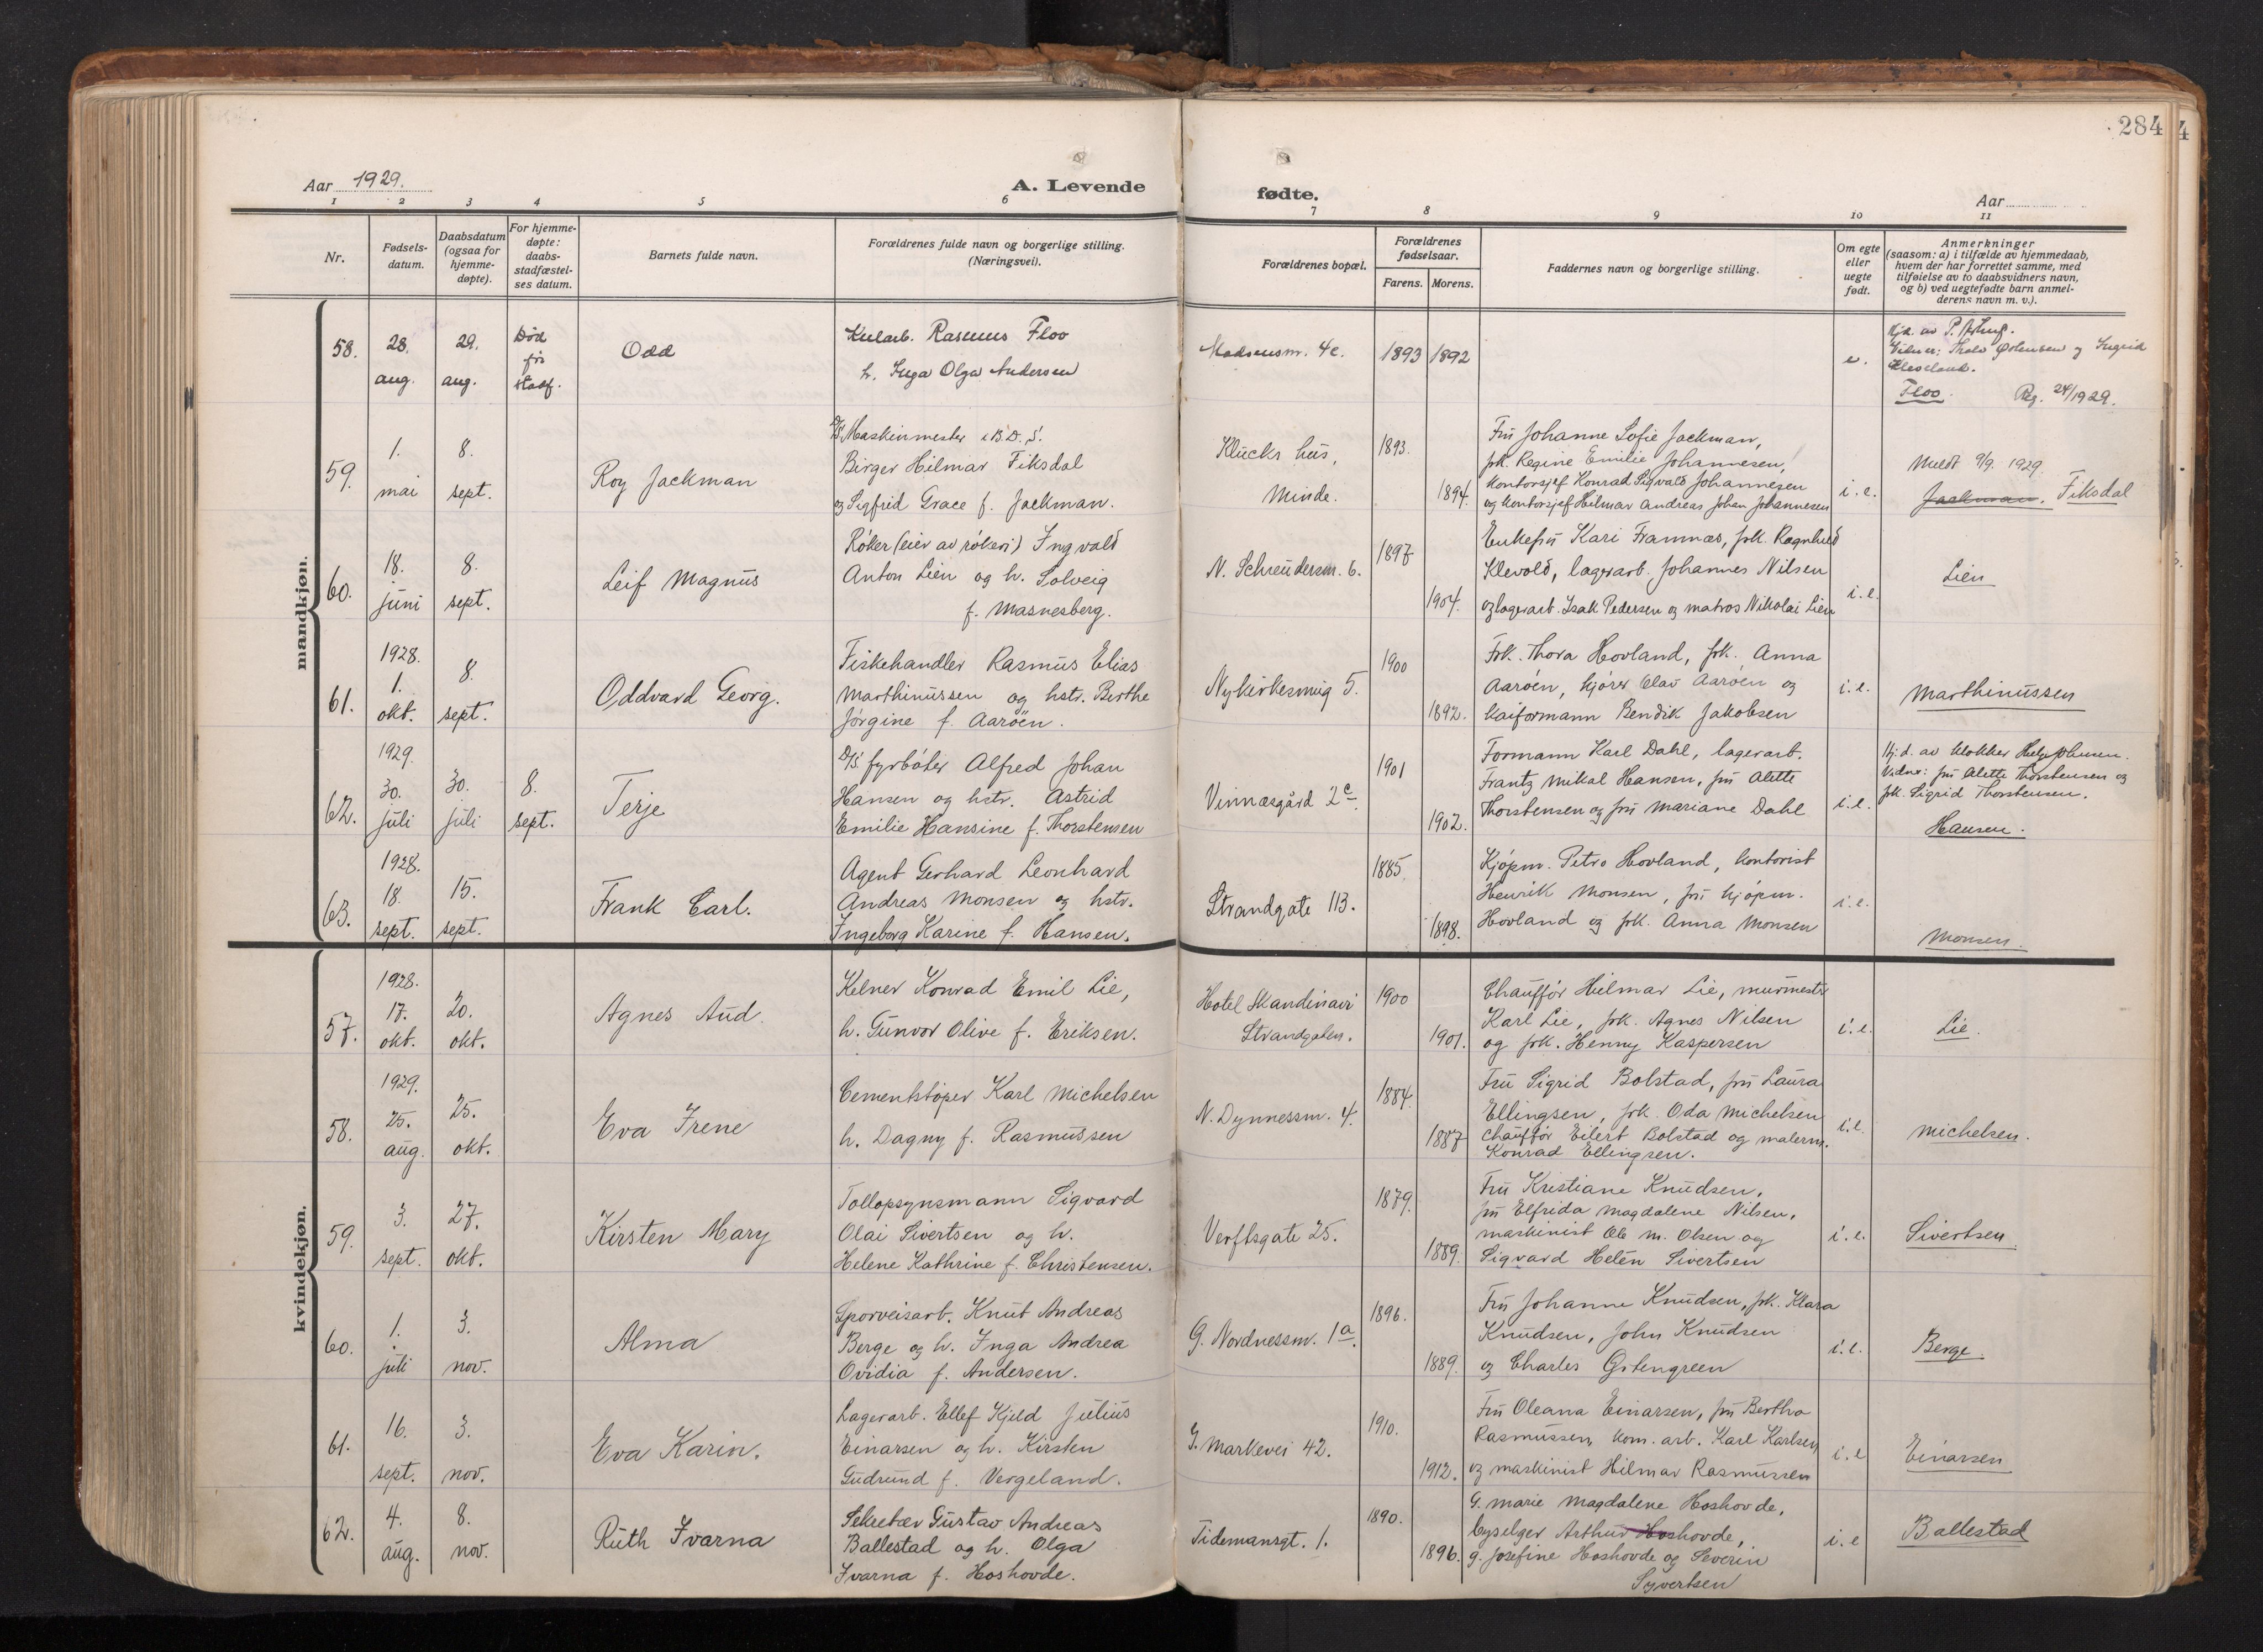 284
4
Aar 1929.
A. Levende
fødte.
Aar
1 2 3 4 5 6 7 8 9 10 11
Nr.
Fødsels-
datum.
Daabsdatum
(ogsaa for
hjemme-
døpte).
For hjemme-
døpte:
daabs-
stadfæstel-
ses datum.
Barnets fulde navn.
Forældrenes fulde navn og borgerlige stilling.
(Næringsvei).
Forældrenes bopæl.
Forældrenes
fødselsaar.
Farens. Morens.
Faddernes navn og borgerlige stilling.
Om egte
eller
uegte
født.
Anmerkninger
(saasom: a) i tilfælde av hjemmedaab,
hvem der har forrettet samme, med
tilføielse av to daabsvidners navn,
og b) ved uegtefødte barn anmel-
derens navn m. v.).
mandkjøn.
58.
28.
aug.
29.
aug.
Død
før
stadf.
Odd
Kularb. Rasmus Floo
h. Inga Olga Andersen
Madsensm. 4c.
1893
1892
e.
Vidner: Ingrid
Kleveland.
Floo. Reg. 24/1929.
59.
1.
mai
8.
sept.
Roy Jackman
D/S Maskinmester i B.D.S.
Birger Hilmar Fiksdal
og Sigfred Grace f. Jackman.
Klucks hus,
Minde.
1893.
1894.
Fru Johanne Sofie Jackman,
frk. Regine Emilie Johannesen,
kontorsjef Konrad Sigvald Johannesen
og kontorsjef Hilmar Andreas Johan Johannesen
i. e.
Meldt 9/9. 1929.
Jackman. Fiksdal
60.
18.
juni
8.
sept.
Leif Magnus
Røker (eier av røkeri) Ingvald
Anton Lien og h. Solveig
f. Masnesberg.
N. Schreudersm. 6.
1897
1904.
Enkefru Kari Framnæs, frk. Ragnhild
Klevold, lagerarb. Johannes Nilsen
og lagerarb. Isak Pedersen og matros Nikolai Lien
i. e.
Lien
61.
1928.
1.
okt.
8.
sept.
Oddvard Georg.
Fiskehandler Rasmus Elias
Marthinussen og hstr. Berthe
Jørgine f. Aarøen.
Nykirkesmug 5.
1900
1892.
Frk. Thora Hovland, frk. Anna
Aarøen, kjører Olav Aarøen og
kaiformann Bendik Jakobsen
i. e.
Marthinussen
62.
1929.
30.
juli
30.
juli
8.
sept.
Terje
D/S fyrbøter Alfred Johan
Hansen og hstr. Astrid
Emilie Hansine f. Thorstensen
Vinnæsgård 2c.
1901
1902.
Formann Karl Dahl, lagerarb.
Frantz Mikal Hansen, fru Alette
Thorstensen og fru Mariane Dahl
i. e.
Hj. d. av klokker Helge Johnsen.
Vidner: fru Alette Thorstensen og
frk. Sigrid Thorstensen.
Hansen.
63.
1928.
18.
sept.
15.
sept.
Frank Carl.
Agent Gerhard Leonhard
Andreas Monsen og hstr.
Ingeborg Karine f. Hansen.
Strandgate 113.
1885
1898.
Kjøpm. Petro Hovland, kontorist
Henrik Monsen, fru kjøpm.
Hovland og frk. Anna Monsen
i. e.
Monsen.
kvindekjøn.
57.
1928.
17.
okt.
20.
okt.
Agnes Aud.
Kelner Konrad Emil Lie,
h. Gunvor Olive f. Eriksen.
Hotel Skandinavi
Strandgaten.
1900
1901.
Chauffør Hilmar Lie, murmestr
Karl Lie, frk. Agnes Nilsen
og frk. Henny Kaspersen
i. e.
Lie.
58.
1929.
25.
aug.
25.
okt.
Eva Irene
Cementstøper Karl Michelsen
h. Dagny f. Rasmussen
N. Dynnessm. 4.
1884
1887
Fru Sigrid Bolstad, fru Laura
Ellingsen, frk. Oda Michelsen
chauffør Eilert Bolstad og malerm.
Konrad Ellingsen.
i. e.
Michelsen.
59.
3.
sept.
27.
okt.
Kirsten Mary
Tollopsynsmann Sigvard
Olai Sivertsen og h.
Helene Kathrine f. Christensen.
Verftsgate 25.
1879.
1889.
Fru Kristiane Knudsen,
fru Elfrida Magdalene Nilsen,
maskinist Ole M. Olsen og
Sigvard Helén Sivertsen
i. e.
Sivertsen.
60.
1.
juli
3.
nov.
Alma
Sporveisarb. Knut Andreas
Berge og h. Inga Andrea
Ovidia f. Andersen.
G. Nordnessm. 1a.
1896.
1889.
Fru Johanne Knudsen, frk. Klara
Knudsen, John Knudsen
og Charles Gstengreen
i. e.
Berge.
61.
16.
sept.
3.
nov.
Eva Karin.
Lagerarb. Ellef Kjeld Julius
Einarsen og h. Kirsten
Gudrund f. Vergeland.
I. Markevei 42.
1910.
1912.
Fru Oleana Einarsen, fru Bertha
Rasmussen, kom. arb. Karl Karlsen
og maskinist Hilmar Rasmussen
i. e
Einarsen
62.
4.
aug.
8.
nov.
Ruth Ivarna
Sekretær Gustav Andreas
Ballestad og h. Olga
Ivarna f. Hoshovde.
Tidemansgt. 1.
1890.
1896.
G. Marie Magdalene Hoshovde,
Arthur Hoshovde,
g. Josefine Hoshovde og Severin
Syvertsen
i. e
Ballestad